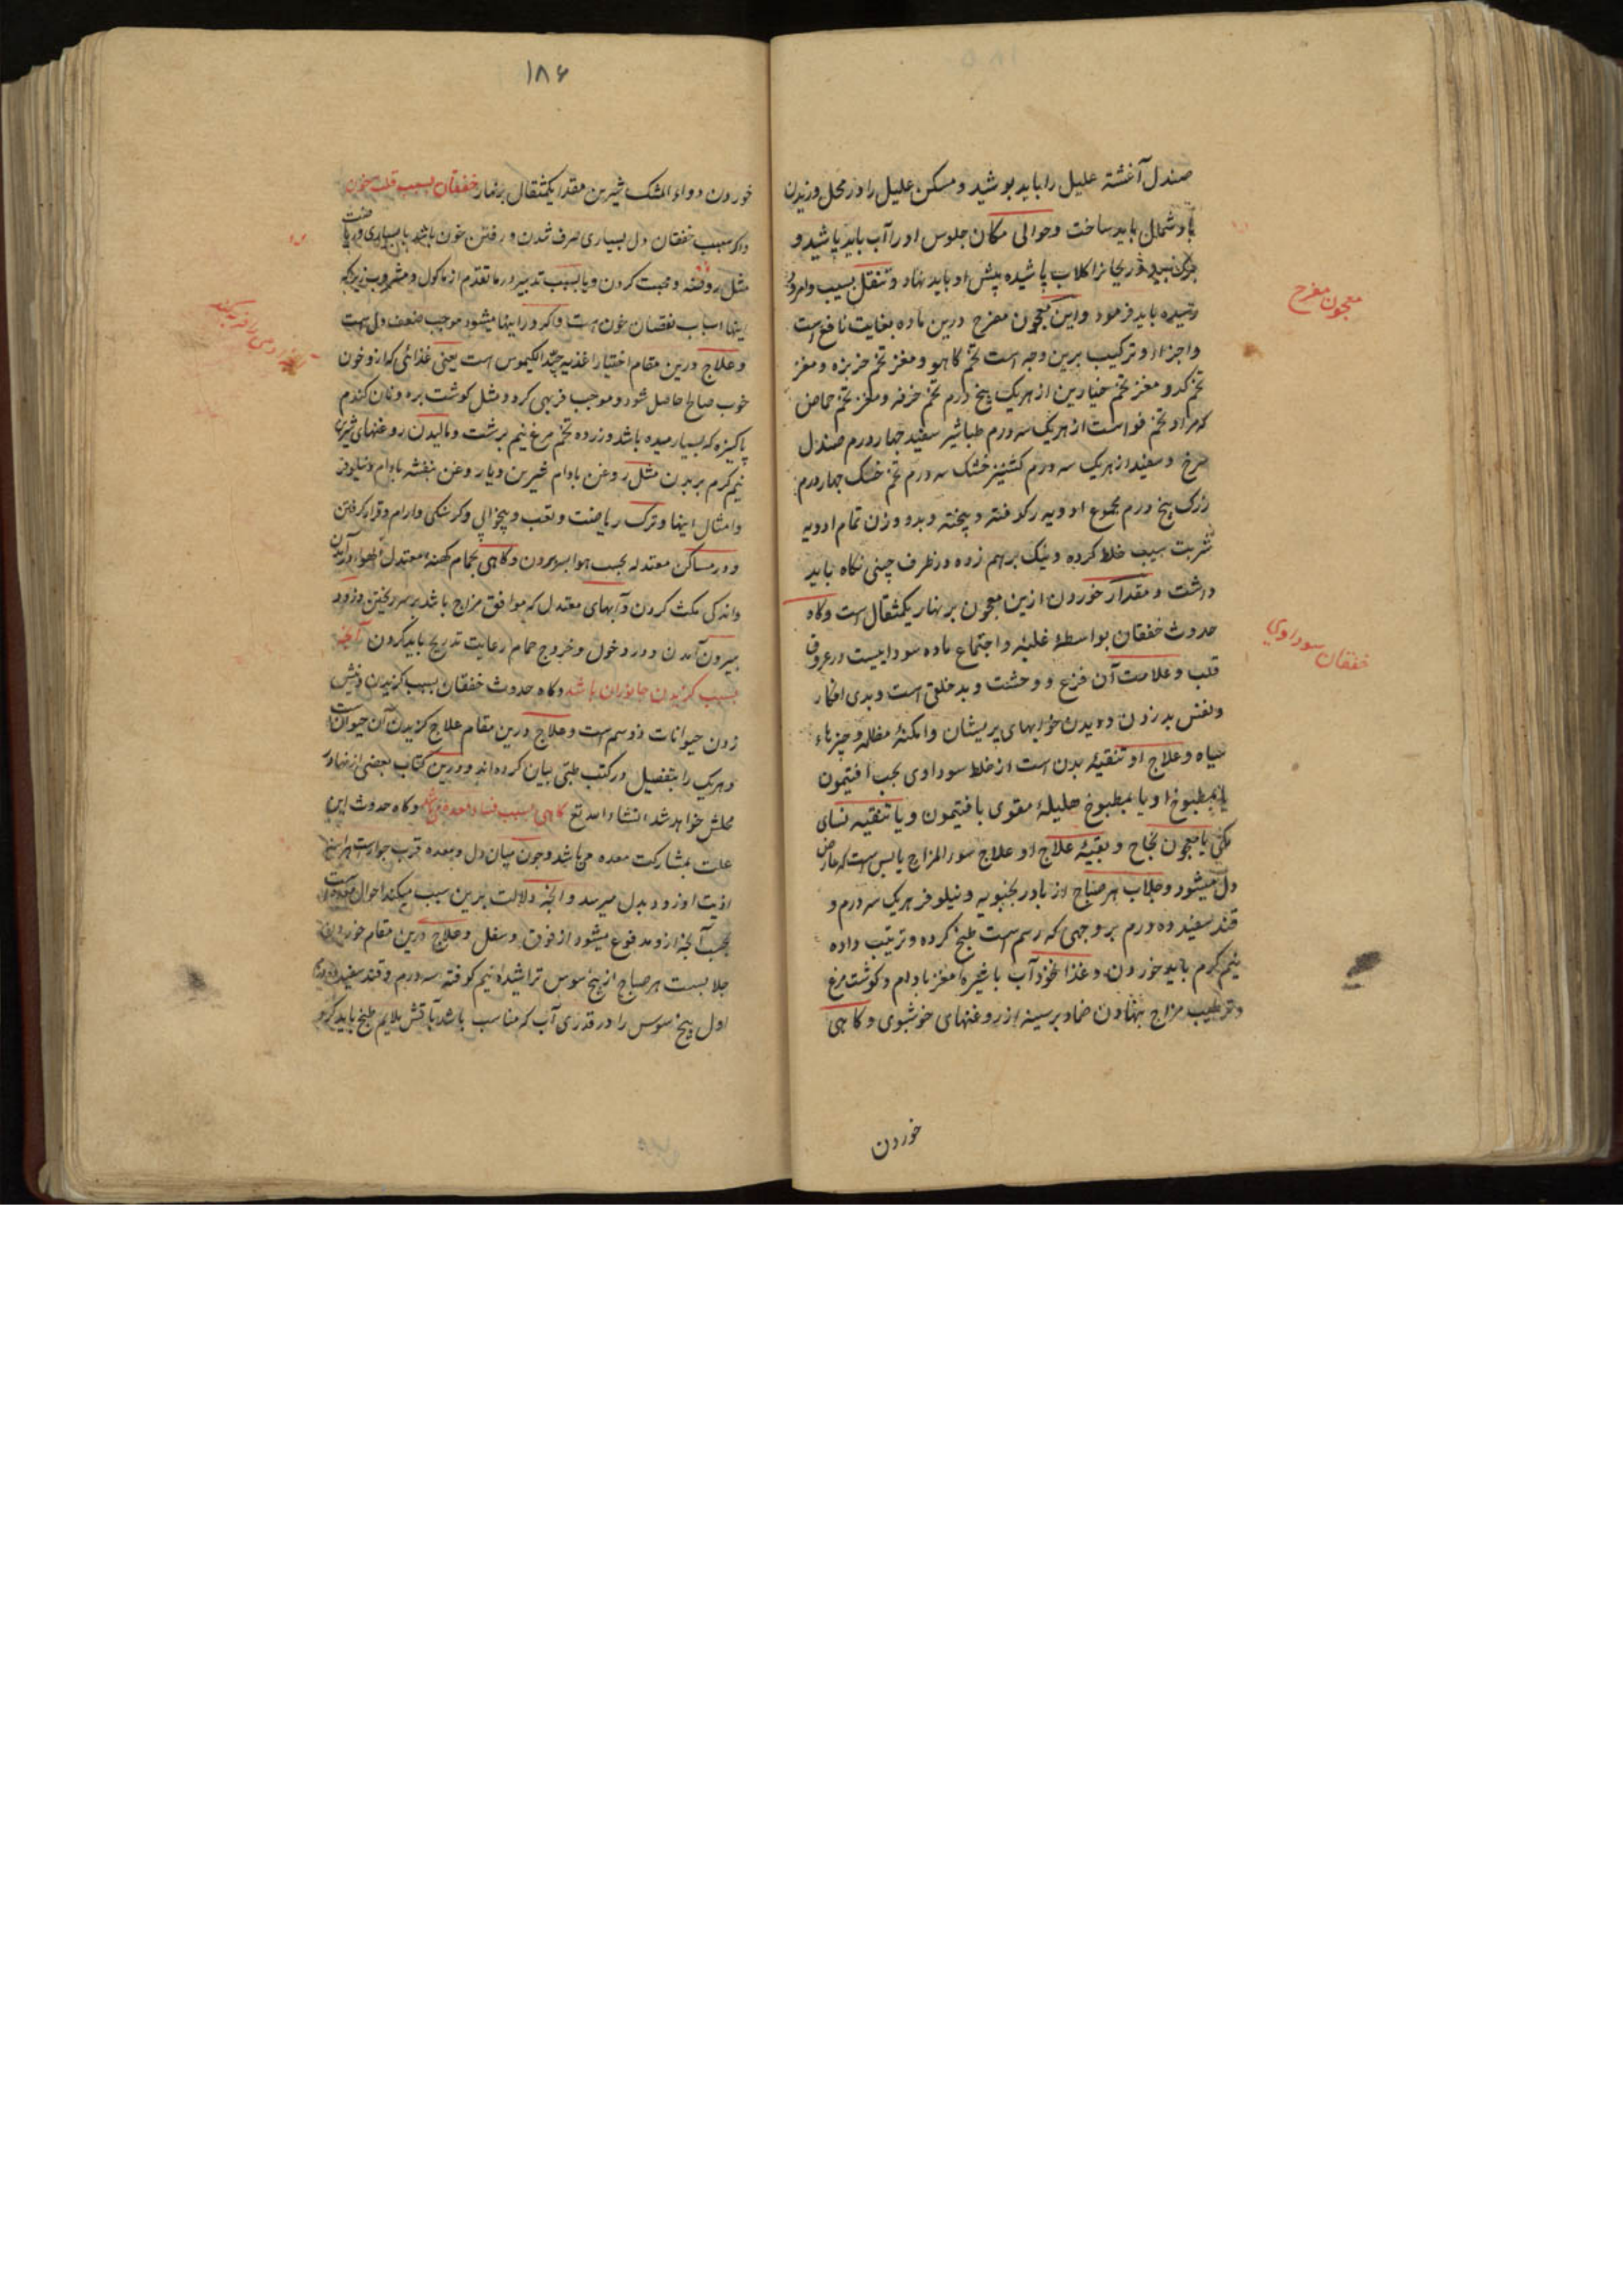 صندل آغشته علیل را باید بوشید و مسکن علیل را در محل وزیدن
باد شمال باید ساخت و حوالی مکان جلوس او را آب باید پاشید و
کلاب پاشیده پیش او باید نهاد و تنقل بسیب و امرود
رسیده باید فرمود و این معجون مفرح درین ماده بغایت نافع است
معجون مفرح
و اجزاء و ترکیب برین وجه است تخم کاهو و مغز تخم خربزه و مغز
تخم کدو و مغز تخم خیارین از هر یک پنج درم تخم خرفه و مغز تخم حماض
که مراد تخم است از هر یک سه درم طباشیر سفید چهار درم صندل
سرخ و سفید از هر یک سه درم کشنیز خشک سه درم تخم خشک چهار درم
زرک پنج درم مجموع ادویه را کوفته و بیخته و بدو وزن تمام ادویه
شربت سیب خلط کرده و نیک برهم زده در ظرف چینی نکاه باید
داشت و مقدار خوردن ازین معجون بر نهار یکمثقال است و کاه
حدوث خفقان بواسطهٔ غلبهٔ و اجتماع ماده سوداییست در عروق
خفقان سوداوی
قلب و علامت آن فزع و وحشت و بد خلقی است و بدی افکار
و نفس بد زدن و دیدن خوابهای پریشان و امکنهٔ مظلمه و چیزهاء
سیاه و علاج او تنقیهٔ بدن است از خلط سوداوی بحب افتیمون
یا بمطبوخ او یا بمطبوخ هلیلهٔ مقوی بافتیمون و یا تنقیه
یا معجون نجاح و بقیهٔ علاج او علاج سوء المزاج یابس است که عارض
دل میشود و جلاب هر صباح از بادرنجبویه و نیلوفر هر یک سه درم و
قند سفید ده درم بر وجهی که رسم است طبخ کرده و ترتیب داده
نیم کرم باید خوردن و غذا نخود آب با شیرهٔ مغز بادام و کوشت مرغ
و ترطیب مزاج بنهادن ضماد بر سینه از روغنهای خوشبوی و کاهی
خوردن
۱۸۶
خوردن دواء المشک شیرین مقدار یکمثقال بر نهار خفقان بسبب قلت خون
و اکر سبب خفقان دل بسیاری صرف شدن و رفتن خون باشد یا بسیاری ریاضت
مثل و محبت کردن و یا بسبب تدبیر در ما تقدم از ماکول و مشروب زیرکه
اینها اسباب نقصان خون است و اینها میشود موجب ضعف دل است
و علاج درین مقام اختیار اغذیه جید الکیموس است یعنی غذائی که ازو خون
خوب صالح حاصل شود و موجب فربهی کردد مثل کوشت بره و نان کندم
پاکیزه که بسیار میده باشد و زرده تخم مرغ نیم برشت و مالیدن روغنهای شیرین
نیم کرم بر بدن مثل روغن بادام شیرین و یا روغن بنفشه بادام و نیلوفر
و امثال اینها و ترک ریاضت و تعب و بیخوابی و کرسنکی و ارام و قرار کرفتن
و در مساکن معتدله بحسب هوا بسر بردن و کاهی بحمام کهنه معتدل الهوا در آمدن
و اندکی مکث کردن و آبهای معتدل که موافق مزاج باشد بر سر ریختن و زود
بیرون آمدن و در دخول و خروج حمام رعایت تدریج باید کردن آنچه
بسبب کزیدن جانوران باشد و کاه حدوث خفقان بسبب کزیدن و نیش
زدن حیوانات ذو سم است و علاج درین مقام علاج کزیدن آن حیوانست
و هر یک را بتفصیل در کتب طبی بیان کرده اند و درین کتاب بعضی از انها در
محلش خواهد شد انشاء الله تع کاهی بسبب فساد معده و کاه حدوث این
علت بمشارکت معده می باشد و چون میان دل و معده قرب جوارست
اذیت او زود بدل میرسد و آنچه دلالت برین سبب میکند احوال معده است
بحسب آنچه ازو مدفوع میشود از فوق و سفل و علاج درین مقام خوردن
جلابست هر صباح از بیخ سوس تراشیده نیم کوفته سه درم و قند سفید ده درم
اول بیخ سوس را در قدری آب که مناسب باشد باتش ملایم طبخ باید کرد و